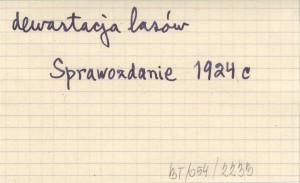 dewastacja lasów
Sprawozdanie 1924 c
BT/654/2235